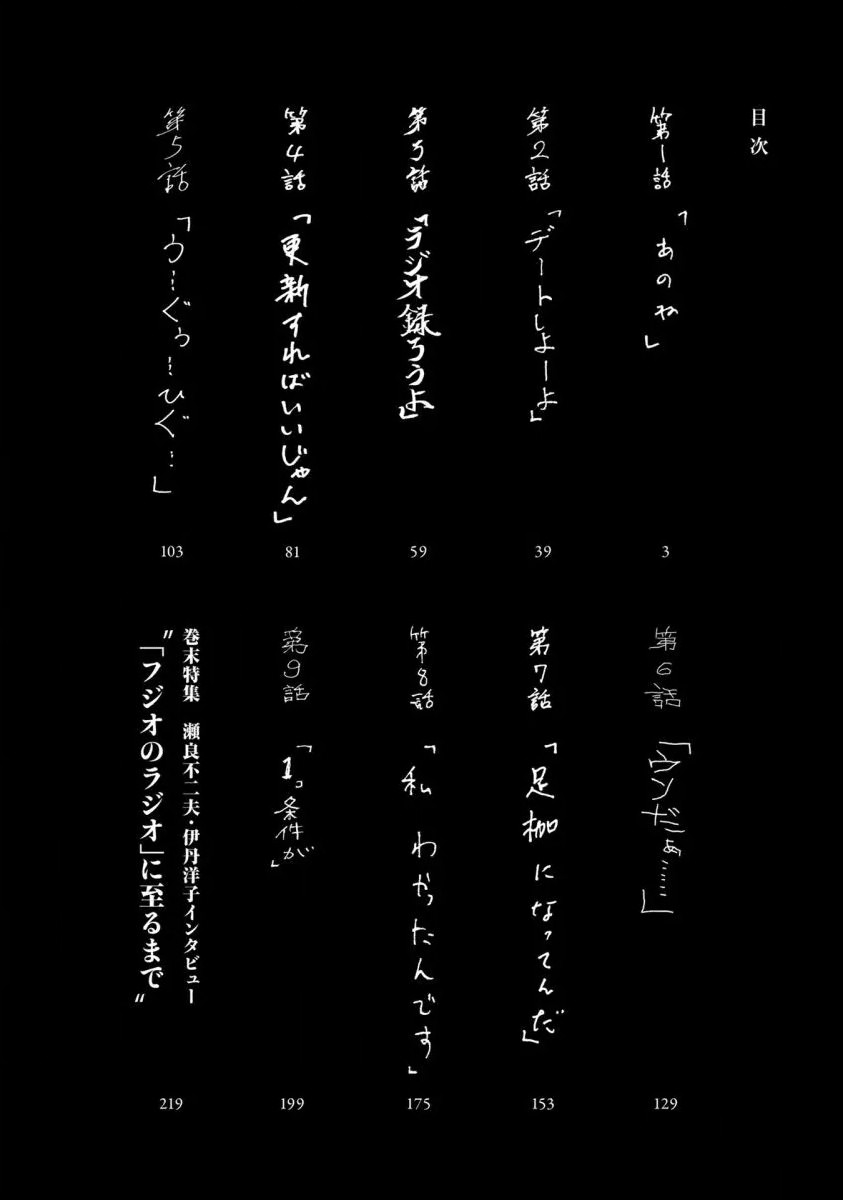 目次
第1話「あのね」
3
第2話「デートしよーよ」
39
第3話「ラジオ録ろうよ」
59
第4話「更新すればいいじゃん」
81
第5話「う…ぐぅ…ひぐ…」
103
第6話「ウソだぁ……」
129
第7話「足枷になってんだ」
153
第8話「私 わかったんです」
175
第9話「1コ条件が」
199
巻末特集 瀬良不二夫・伊丹洋子インタビュー
〝「フジオのラジオ」に至るまで〟
219